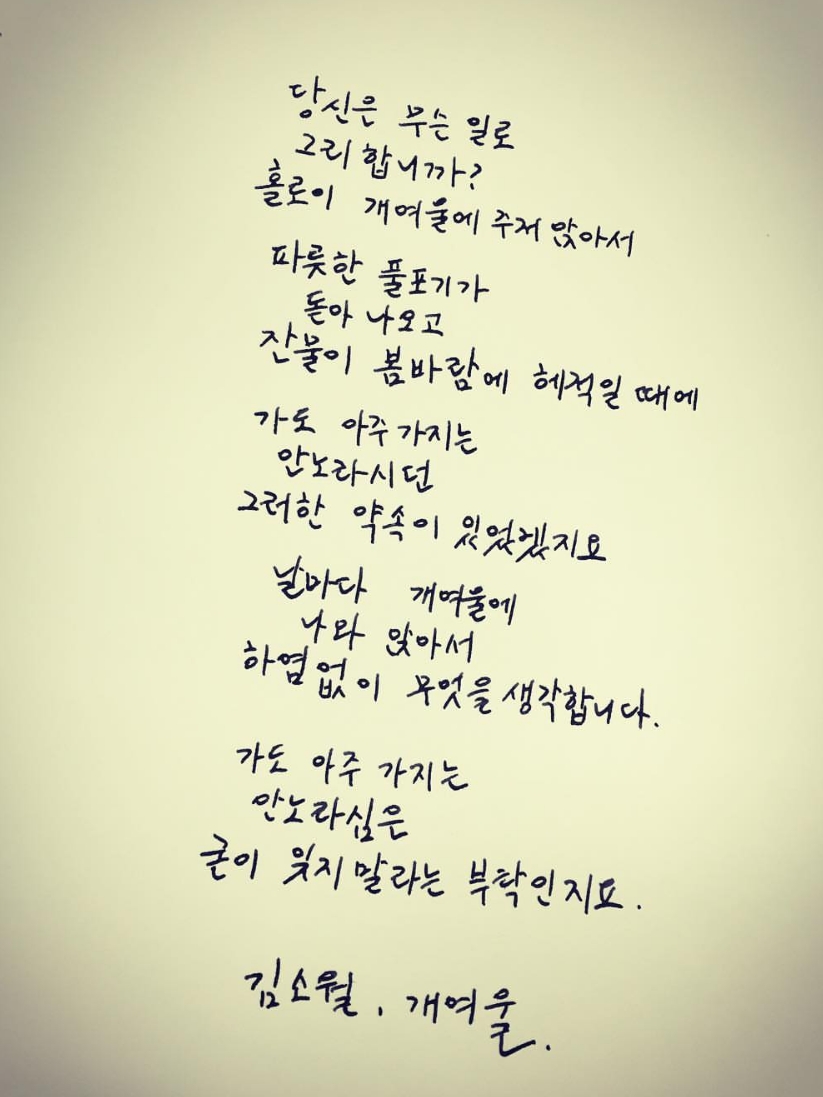 당신은 무슨 일로
그리 합니까?
홀로이 개여울에 주저 앉아서
파릇한 풀포기가
돋아 나오고
잔물이 봄바람에 헤적일 때에
가도 아주 가지는
안노라시던
그러한 약속이 있었겠지요
날마다 개여울에
나와 앉아서
하염없이 무엇을 생각합니다.
가도 아주 가지는
안노라심은
굳이 잊지말라는 부탁인지요.
김소월, 개여울.